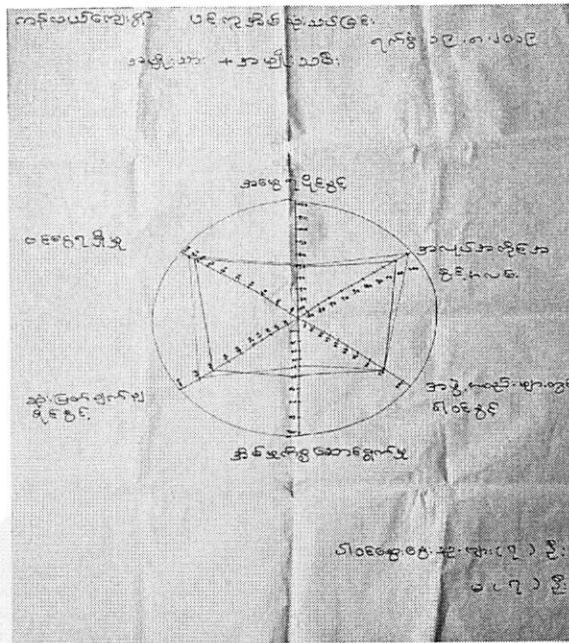 ကန်လယ်ကျေးရွာ ပင့်ကူအိမ်သုံးသပ်ခြင်း
ရက်စွဲ ၁၉.၈.၂၀၁၉
အမျိုးသား + အမျိုးသမီး
အမွေရပိုင်ခွင့်
ဝင်ငွေရရှိမှု
အလုပ်အကိုင်အ
ခွင့်အလမ်း
ဆုံးဖြတ်ချက်ချ
ပိုင်ခွင့်
အဖွဲ့အစည်းများတွင်
ပါဝင်ခွင့်
အိမ်မှုကိစ္စဆောင်ရွက်မှု
ပါဝင်ဆွေးနွေးသူ ကျား (၇) ဦး
မ (၇) ဦး